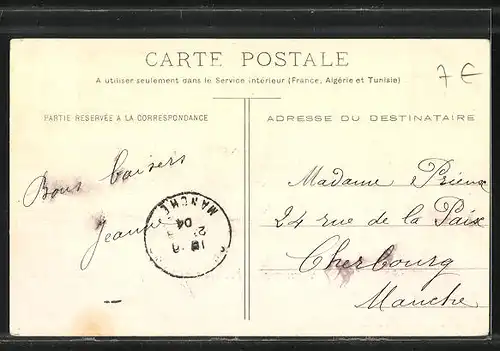 CARTE POSTALE
A utiliser seulement dans le Service intérieur (France, Algérie et Tunisie)
7 €
PARTIE RÉSERVÉE A LA CORRESPONDANCE
ADRESSE DU DESTINATAIRE
Bons baisers
Jeanne
MANCHE
04
Madame Prieux
24 rue de la Paix
Cherbourg
Manche